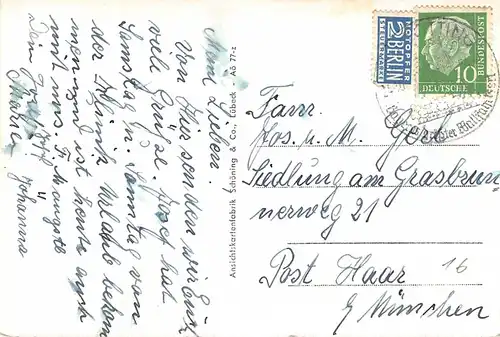 Meine Lieben!
Von hier senden wir Euch
viele Grüße. Josef hat
Samstag u. Sonntag von
der Klinik Urlaub bekom
men und ist heute auch
mit uns
Dein
Maria Johanna
Ansichtskartenfabrik Schöning & Co., Lübeck · Aö 77-z
NOTOPFER
2 BERLIN
STEUERMARKE
DEUTSCHE
BUNDESPOST
10
Fam.
Jos. u. M.
Siedlung am Grasbrun-
nerweg 21
Post Haar 16
b/ München